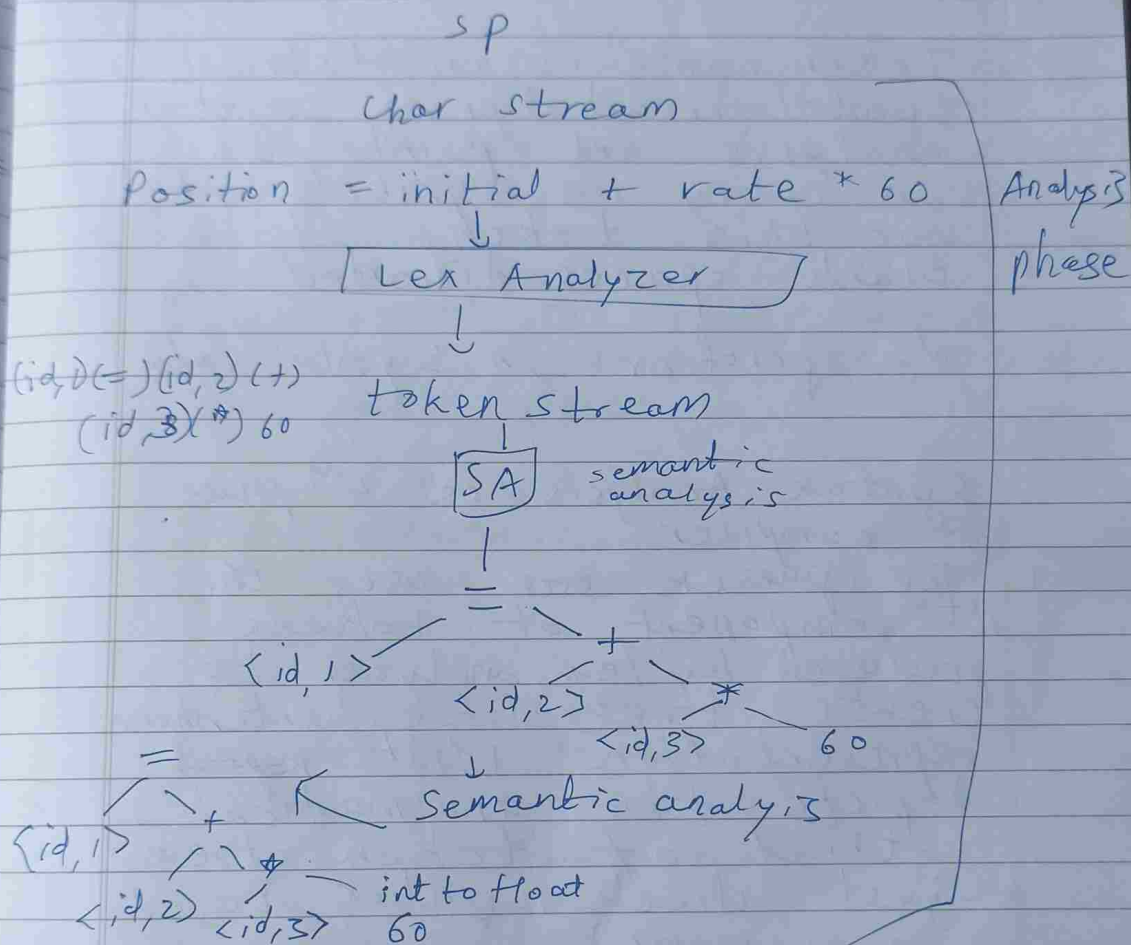 SP
Char stream
Position = initial + rate * 60
Analysis
phase
Lex Analyzer
(id,1)(=)(id,2)(+)
(id,3)(*) 60
token stream
SA
semantic
analysis
=
<id,1>
+
<id,2>
*
<id,3>
60
Semantic analysis
=
<id,1>
+
<id,2>
*
<id,3>
int to float
60